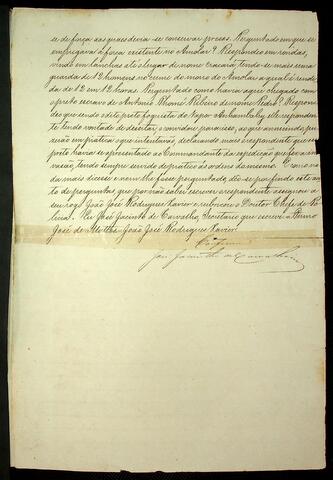 se de força aos quaes devia-se conservar presos. Perguntado em que se
empregava a força existente no Amolar? Respondeo em rondas,
vindo em lanchas até o lugar de nome Caracará, tendo-se mais uma
guarda de 12 homens no cume do morro do Amolar a qual é rendi-
da de 12 em 12 horas. Perguntado como havia aqui chegado com
o preto escravo de Antonio Thomé Ribeiro de nome Pedro? Respon-
deo que sendo elle preto foguista do Vapor Anhambahy elle responden-
te tendo vontade de desertar o convidou para isso, ao que annuindo, pu-
zerão em pratica o que intentavão, declarando mais o respondente que o
preto havia se apresentado ao Commandante da expedição que fez a in-
vasão, tendo sempre servido de pratico ás ordens do mesmo. E como na-
da mais disesse e nem lhe fosse perguntado deo-se por findo este au-
to de perguntas, que por não saber escrever o respondente assignou a
seu rogo João José Rodrigues Xavier e rubricou o Doutor Chefe de Po-
licia. Eu José Jacintho de Carvalho, Secretario que escrevi
José de Mattos. João José Rodrigues Xavier.
José Jacintho de Carvalho